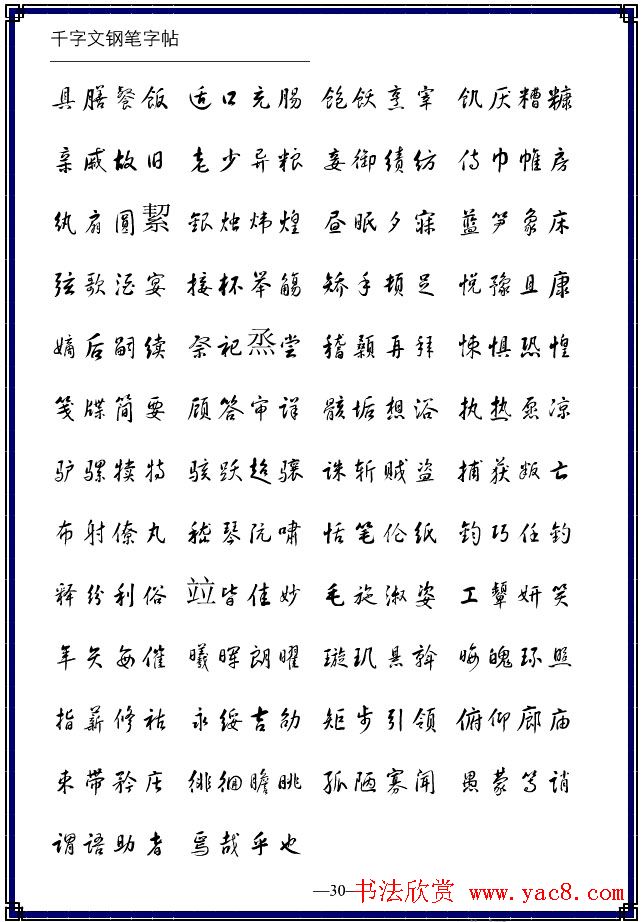 千字文钢笔字帖
具膳餐饭 适口充肠 饱饫烹宰 饥厌糟糠
亲戚故旧 老少异粮 妾御绩纺 侍巾帷房
纨扇圆絜 银烛炜煌 昼眠夕寐 蓝笋象床
弦歌酒宴 接杯举觞 矫手顿足 悦豫且康
嫡后嗣续 祭祀烝尝 稽颡再拜 悚惧恐惶
笺牒简要 顾答审详 骸垢想浴 执热愿凉
驴骡犊特 骇跃超骧 诛斩贼盗 捕获叛亡
布射僚丸 嵇琴阮啸 恬笔伦纸 钧巧任钓
释纷利俗 竝皆佳妙 毛施淑姿 工颦妍笑
年矢每催 曦晖朗曜 璇玑悬斡 晦魄环照
指薪修祜 永绥吉劭 矩步引领 俯仰廊庙
束带矜庄 徘徊瞻眺 孤陋寡闻 愚蒙等诮
谓语助者 焉哉乎也
—30—
书法欣赏 www.yac8.com